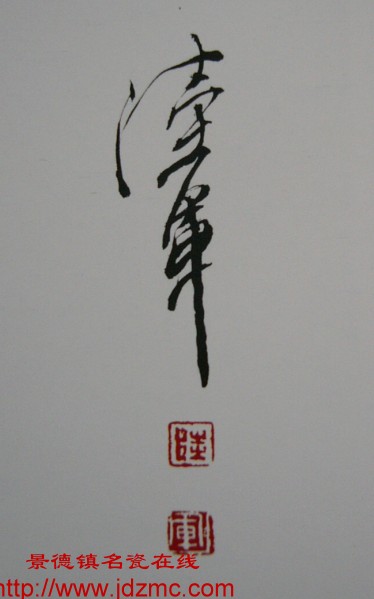 陸軍
陸
軍
景德镇名瓷在线
http://www.jdzmc.com